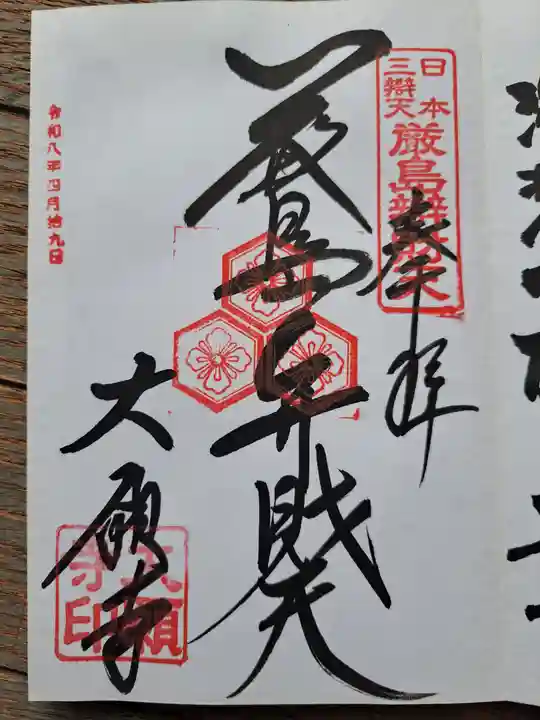 日本
三辯天
厳島辨財天
奉拝
厳島弁財天
大願寺
大願寺印
令和八年四月拾九日